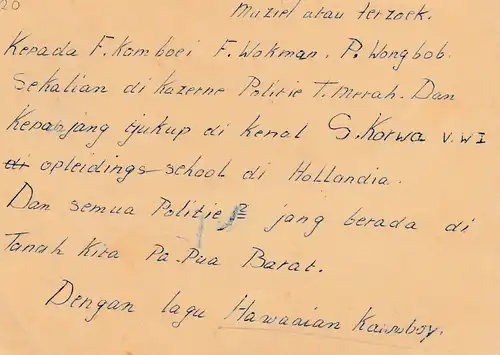 20
Muziek atau terzoek.
Kepada F. Komboei F. Wokman. P. Wongbob.
Sekalian di kazerne Politie T. Merah. Dan
Kepadajang tjukup di kenal S. Korwa v. w I
di opleidings school di Hollandia.
Dan semua Politie 2 jang berada di
Tanah Kita Pa-Pua Barat.
Dengan lagu Hawaaian Kauwboy.